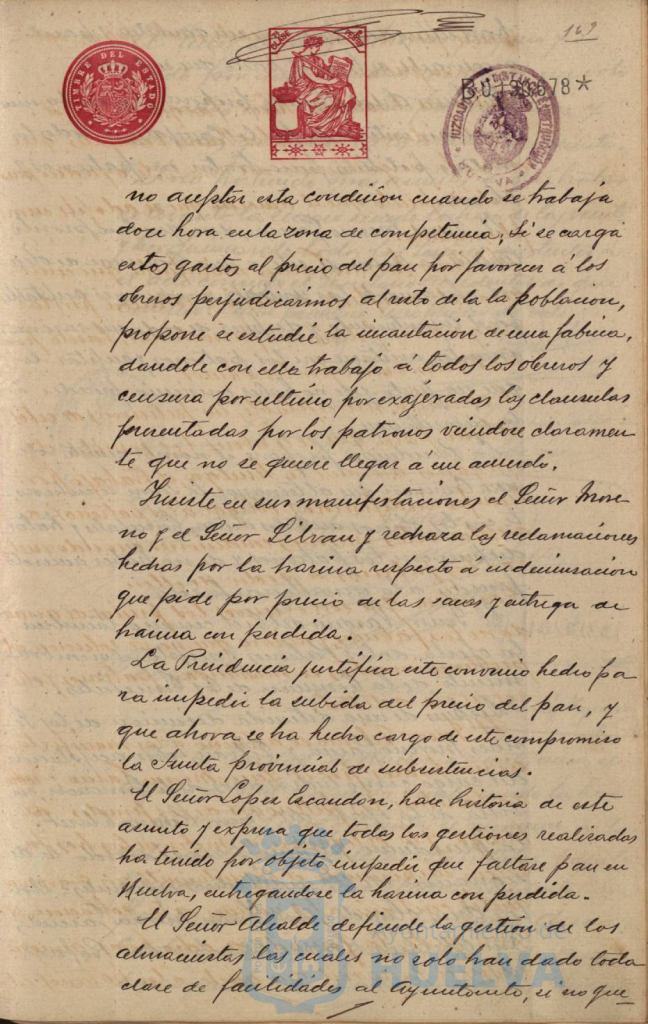 169
TIMBRE DEL ESTADO
CLASE
no aceptar esta condicion cuando se trabaja
doce hora en la zona de competencia; Si se carga
estos gastos al precio del pan por favorecer á los
obreros perjudicarimos al resto de la la poblacion,
propone se estudie la incautación de una fabrica,
dandole con ella trabajo á todos los obreros y
censura por ultimo por exajeradas las clausulas
presentadas por los patronos viendose claramen-
te que no se quiere llegar á un acuerdo.
Insiste en sus manifestaciones el Señor More-
no y el Señor Silván y rechaza las reclamaciones
hechas por la harina respecto á indemnisación
que pide por precio de las sacos y entrega de
harina con perdida.
La Presidencia justifica este convenio hecho pa
ra impedir la subida del precio del pan, y
que ahora se ha hecho cargo de este compromiso
la Junta provincial de subsistencias.
El Señor Lopez Escandon, hace historia de este
asunto y expresa que todas las gestiones realizadas
ha tenido por objeto impedir que faltase pan en
Huelva, entregandose la harina con perdida.
El Señor Alcalde defiende la gestión de los
almacenistas los cuales no solo han dado toda
clase de facilidades al Ayuntamto, si no que
HUELVA